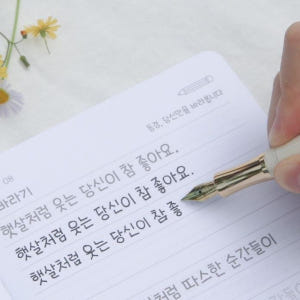 동경, 당신만을 바라봅니다
08
바라기
햇살처럼 웃는 당신이 참 좋아요.
햇살처럼 웃는 당신이 참 좋아요.
햇살처럼 웃는 당신이 참 좋
살처럼 따스한 순간들이